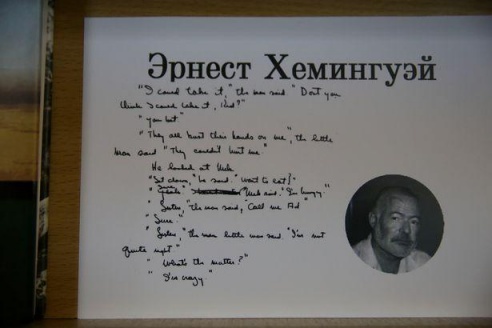 Эрнест Хемингуэй
"I could take it," the man said. "Don't you
think I could take it, kid?"
"You bet."
"They all bust their hands on me," the little
man said. "They couldn't hurt me."
He looked at Nick.
"Sit down," he said. "Want to eat?"
"Nick said. "I'm hungry."
"Listen," the man said, "Call me Ad"
"Sure."
"Listen," the man little man said. "I'm not
quite right."
"What's the matter?"
"I'm crazy"